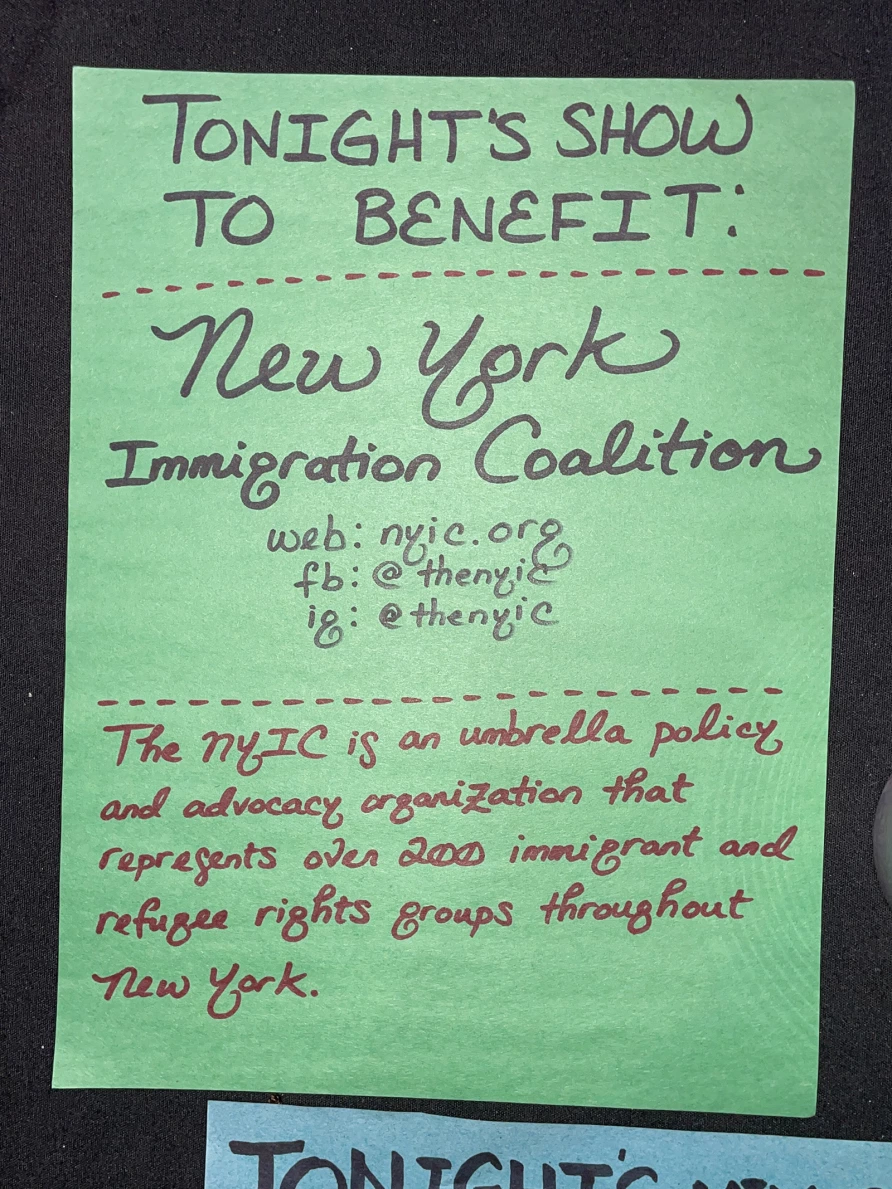 TONIGHT'S SHOW
TO BENEFIT:
New York
Immigration Coalition
web: nyic.org
fb: @thenyic
ig: @thenyic
The NYIC is an umbrella policy
and advocacy organization that
represents over 200 immigrant and
refugee rights groups throughout
New York.
TONIGHT'S